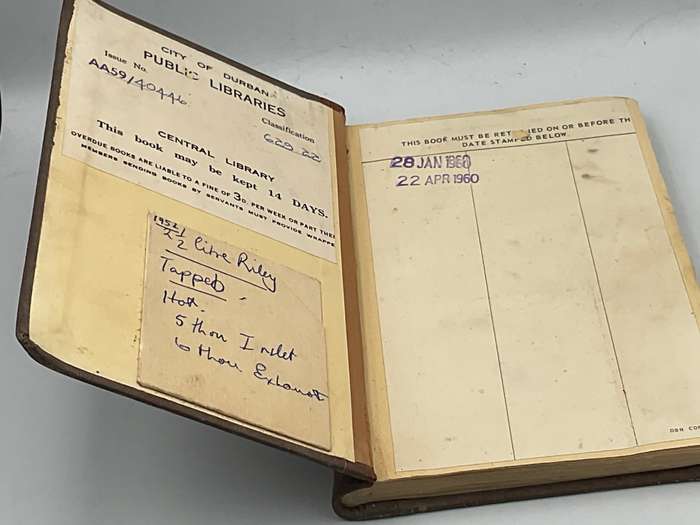 CITY OF DURBAN
PUBLIC LIBRARIES
Issue No.
AA59/40446
Classification
629.22
CENTRAL LIBRARY
This book may be kept 14 DAYS.
OVERDUE BOOKS ARE LIABLE TO A FINE OF 3D. PER WEEK OR PART THE
MEMBERS SENDING BOOKS BY SERVANTS MUST PROVIDE WRAPPE
1952
2½ litre Riley
Tapped
Hot.
5 thou Inlet
6 thou Exhaust
THIS BOOK MUST BE RETURNED ON OR BEFORE TH
DATE STAMPED BELOW
28 JAN 1960
22 APR 1960
DBN COR